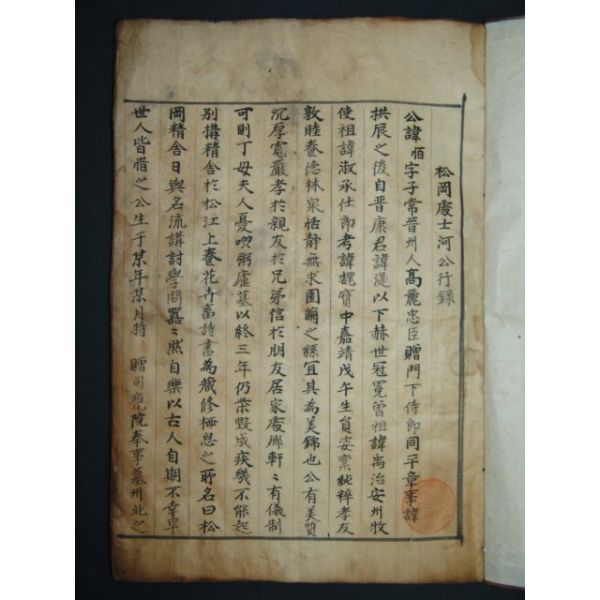 松岡處士河公行錄
公諱恒字子常晉州人高麗忠臣贈門下侍郎同平章事諱
拱辰之後自晉康君諱湜以下赫世冠冕曾祖諱禹治安州牧
使祖諱淑承仕郎考諱魏寶中嘉靖戊午生員姿稟純粹孝友
敦睦養德林泉恬靜無求園繭之絲宜其為美錦也公有美質
沉厚寬嚴孝於親友於兄弟信於朋友居家處鄉軒〻有儀制
可則丁母夫人憂啜粥廬墓以終三年仍柴毀成疾幾不能起
別搆精舍於松江上養花卉畜詩書為藏修極息之所名曰松
岡精舍日與名流講討學問囂〻然自樂以古人自期不幸早
世人皆惜之公生于某年某月特 贈司甕院奉事墓州北之